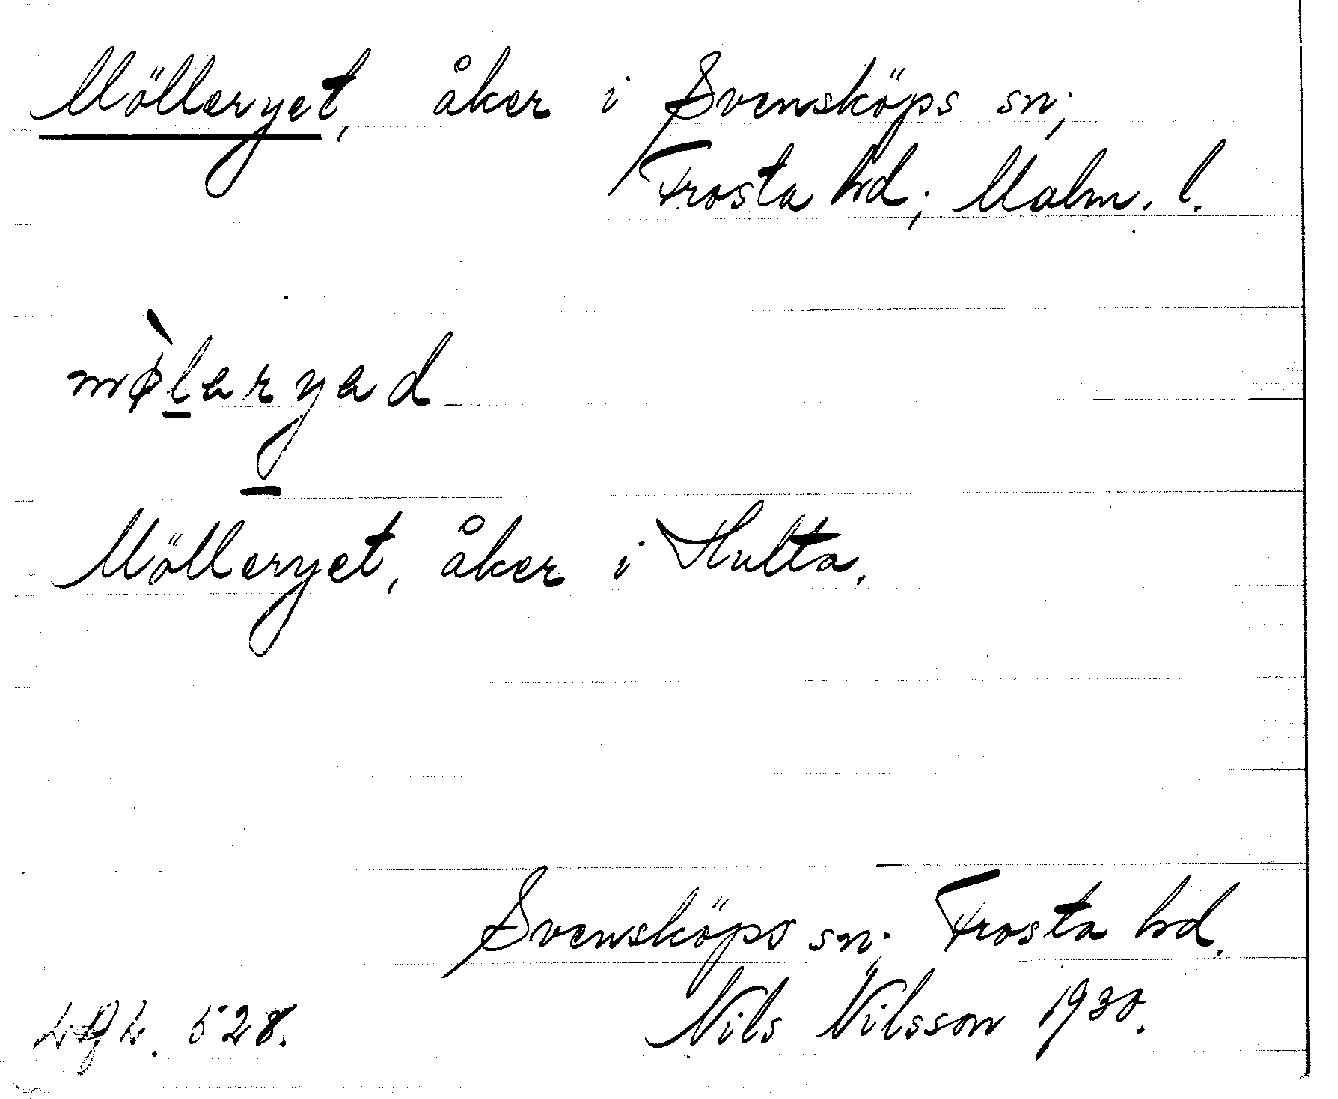 Mölleryet, åker i Svensköps sn;
Frosta hd; Malm. l.
mø̀laryad
Mölleryet, åker i Hulta.
Svensköps sn; Frosta hd.
528. Nils Nilsson 1930.